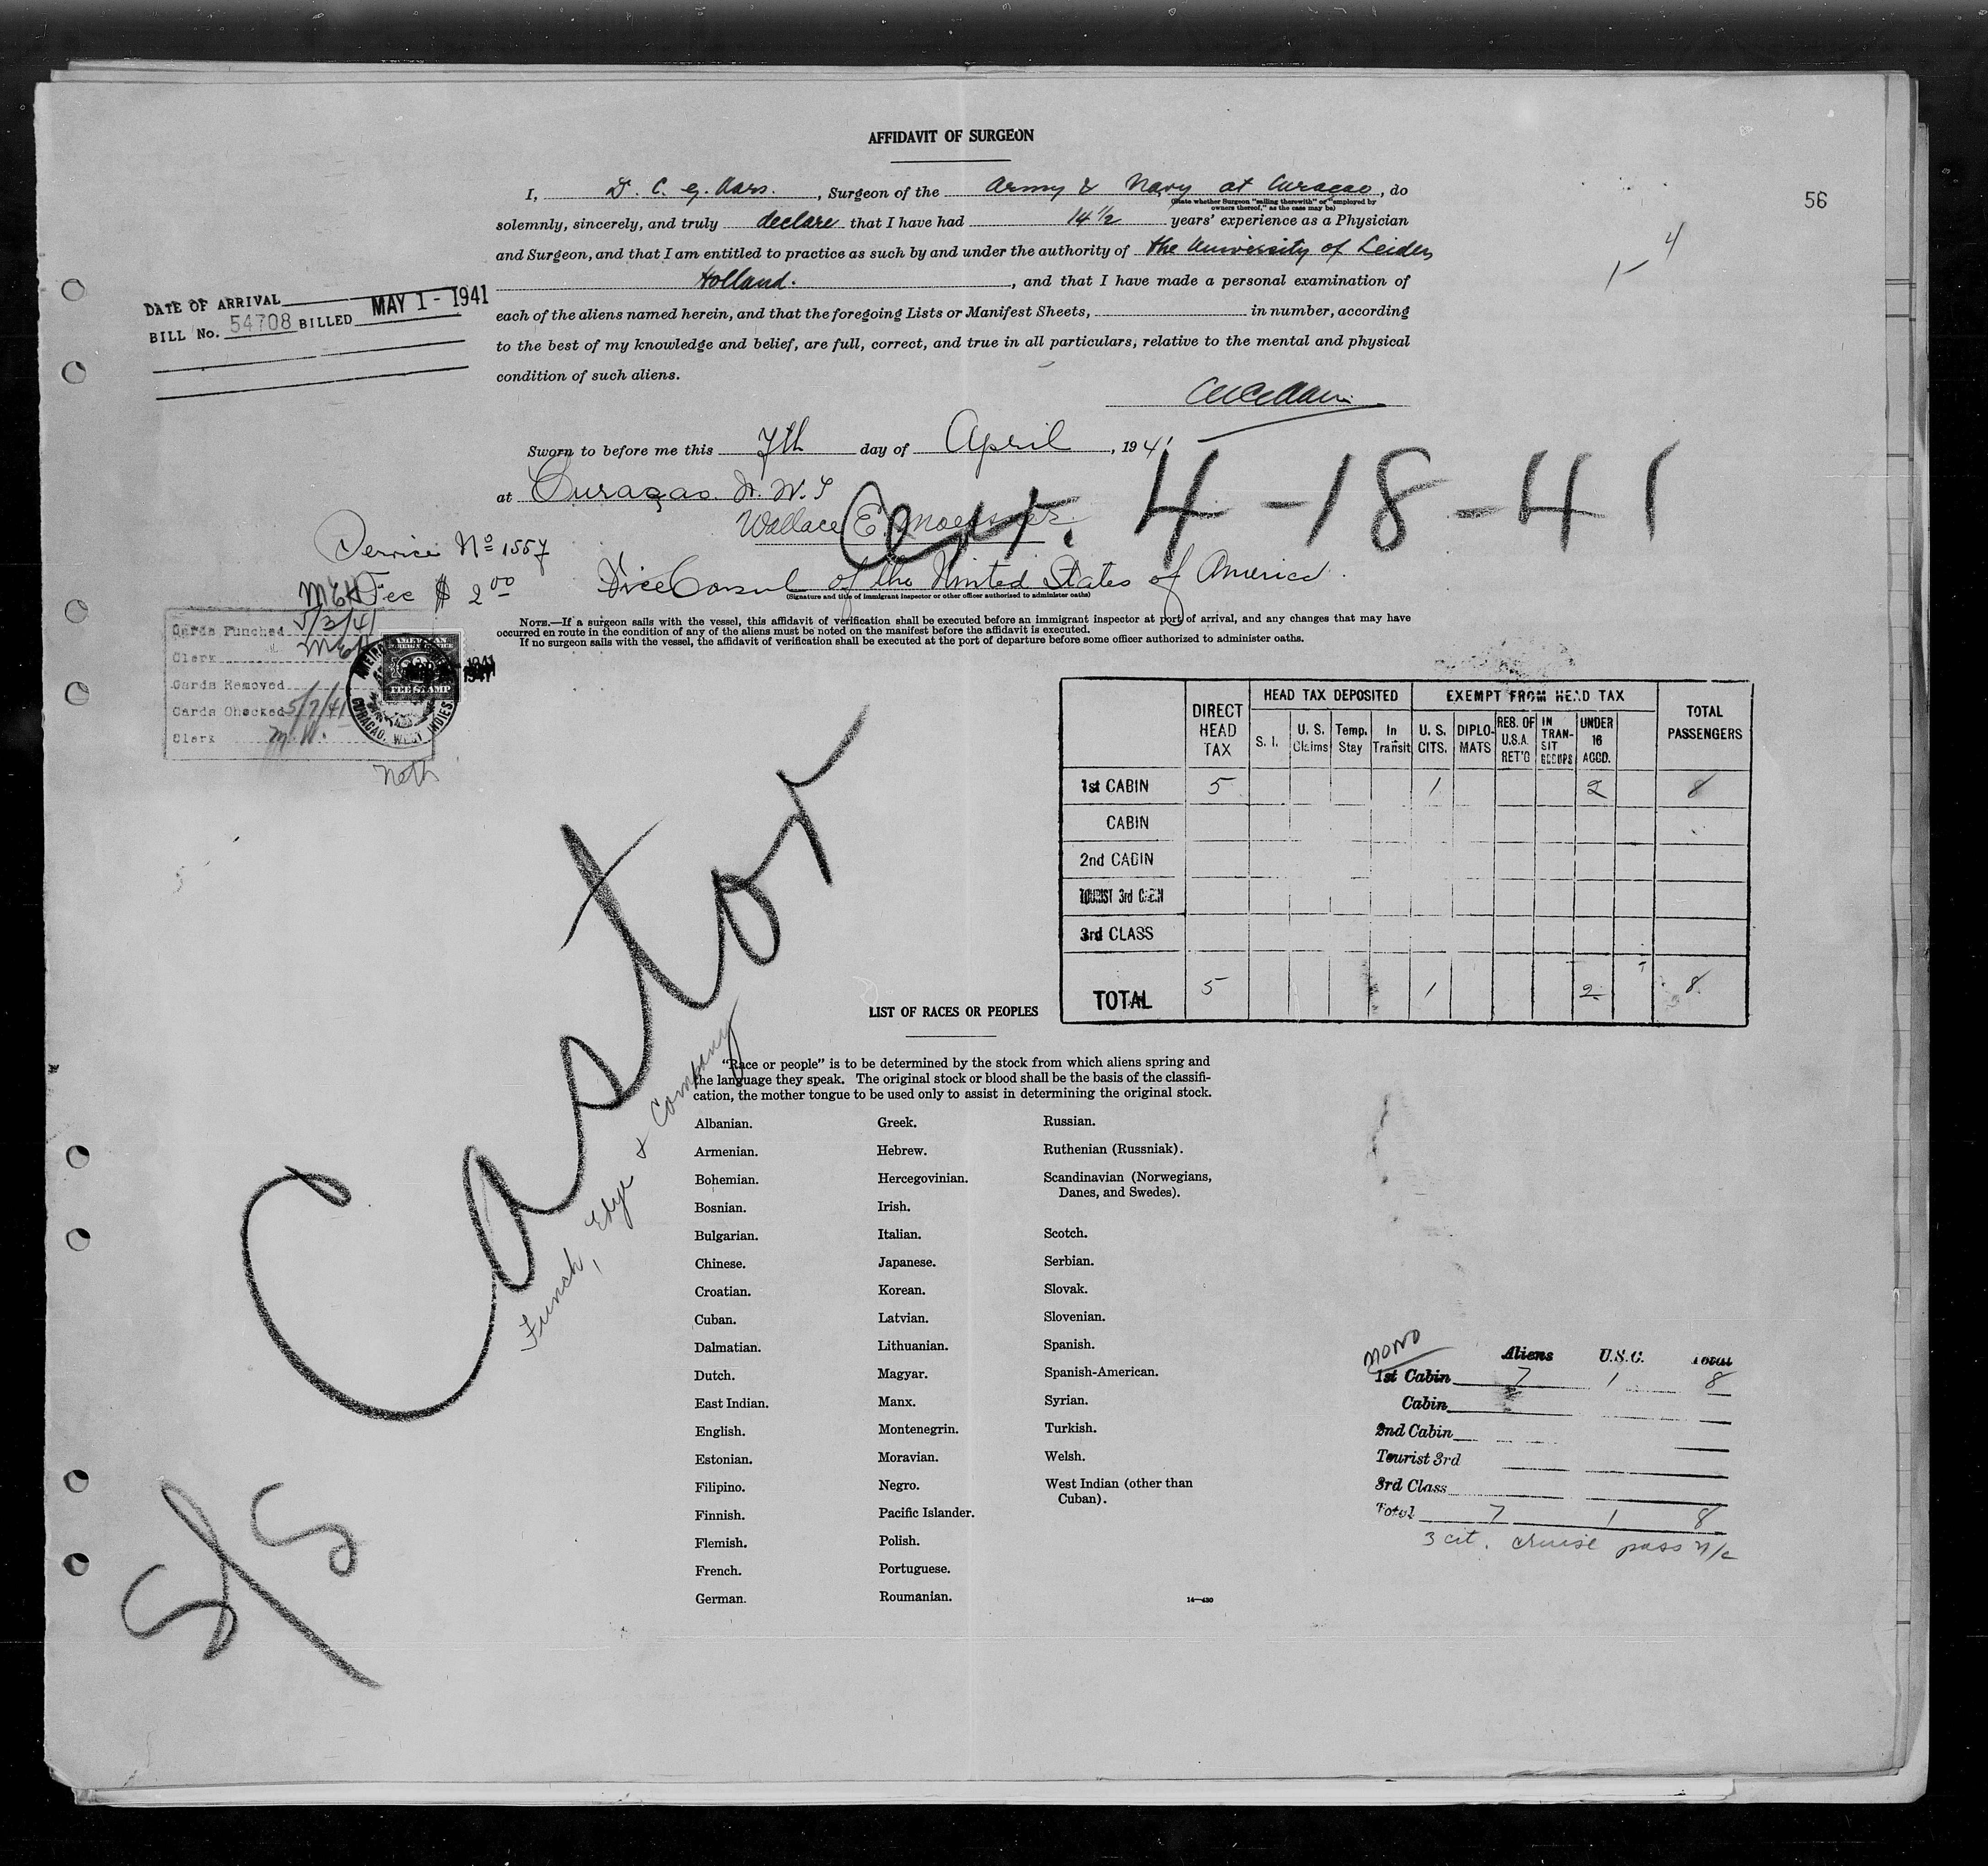 AFFIDAVIT OF SURGEON
56
I, D. C. G. , Surgeon of the Army & Navy at Curaçao, do
(State whether Surgeon "sailing therewith" or "employed by
owners thereof," as the case may be)
solemnly, sincerely, and truly declare that I have had 14 1/2 years' experience as a Physician
and Surgeon, and that I am entitled to practice as such by and under the authority of the University of Leiden
Holland. , and that I have made a personal examination of
each of the aliens named herein, and that the foregoing Lists or Manifest Sheets, in number, according
to the best of my knowledge and belief, are full, correct, and true in all particulars, relative to the mental and physical
condition of such aliens.
4
1
DATE OF ARRIVAL
BILL No. 54708 BILLED MAY 1 - 1941
Sworn to before me this 7th day of April, 1941
at Curaçao N. W. I
Wallace E.
4-18-41
Vice Consul of the United States of America.
(Signature and title of immigrant inspector or other officer authorized to administer oaths)
Service No 1557
Fee $ 2 00
NOTE.—If a surgeon sails with the vessel, this affidavit of verification shall be executed before an immigrant inspector at port of arrival, and any changes that may have
occurred en route in the condition of any of the aliens must be noted on the manifest before the affidavit is executed.
If no surgeon sails with the vessel, the affidavit of verification shall be executed at the port of departure before some officer authorized to administer oaths.
Cards Punched 5/2/41
Clerk
Cards Removed
Cards Checked 5/7/41
Clerk M. W.
AMERICAN
FOREIGN SERVICE
FEE STAMP
CURACAO, WEST INDIES
1941
Neth
DIRECT HEAD TAX
HEAD TAX DEPOSITED
EXEMPT FROM HEAD TAX
TOTAL PASSENGERS
S. I. U. S. Claims Temp. Stay In Transit U. S. CITS. DIPLO-MATS RES. OF U.S.A. RET'G IN TRAN-SIT GROUPS UNDER 16 ACCD.
1st CABIN 5 1 2 8
CABIN
2nd CABIN
TOURIST 3rd CABIN
3rd CLASS
TOTAL 5 1 2 8
S/S Castor
Funch, Edye & Company
LIST OF RACES OR PEOPLES
"Race or people" is to be determined by the stock from which aliens spring and
the language they speak. The original stock or blood shall be the basis of the classifi-
cation, the mother tongue to be used only to assist in determining the original stock.
Albanian.
Armenian.
Bohemian.
Bosnian.
Bulgarian.
Chinese.
Croatian.
Cuban.
Dalmatian.
Dutch.
East Indian.
English.
Estonian.
Filipino.
Finnish.
Flemish.
French.
German.
Greek.
Hebrew.
Hercegovinian.
Irish.
Italian.
Japanese.
Korean.
Latvian.
Lithuanian.
Magyar.
Manx.
Montenegrin.
Moravian.
Negro.
Pacific Islander.
Polish.
Portuguese.
Roumanian.
Russian.
Ruthenian (Russniak).
Scandinavian (Norwegians,
Danes, and Swedes).
Scotch.
Serbian.
Slovak.
Slovenian.
Spanish.
Spanish-American.
Syrian.
Turkish.
Welsh.
West Indian (other than
Cuban).
14—430
Aliens U.S.C. Total
1st Cabin 7 1 8
Cabin
2nd Cabin
Tourist 3rd
3rd Class
Total 7 1 8
3 cit. cruise pass n/c